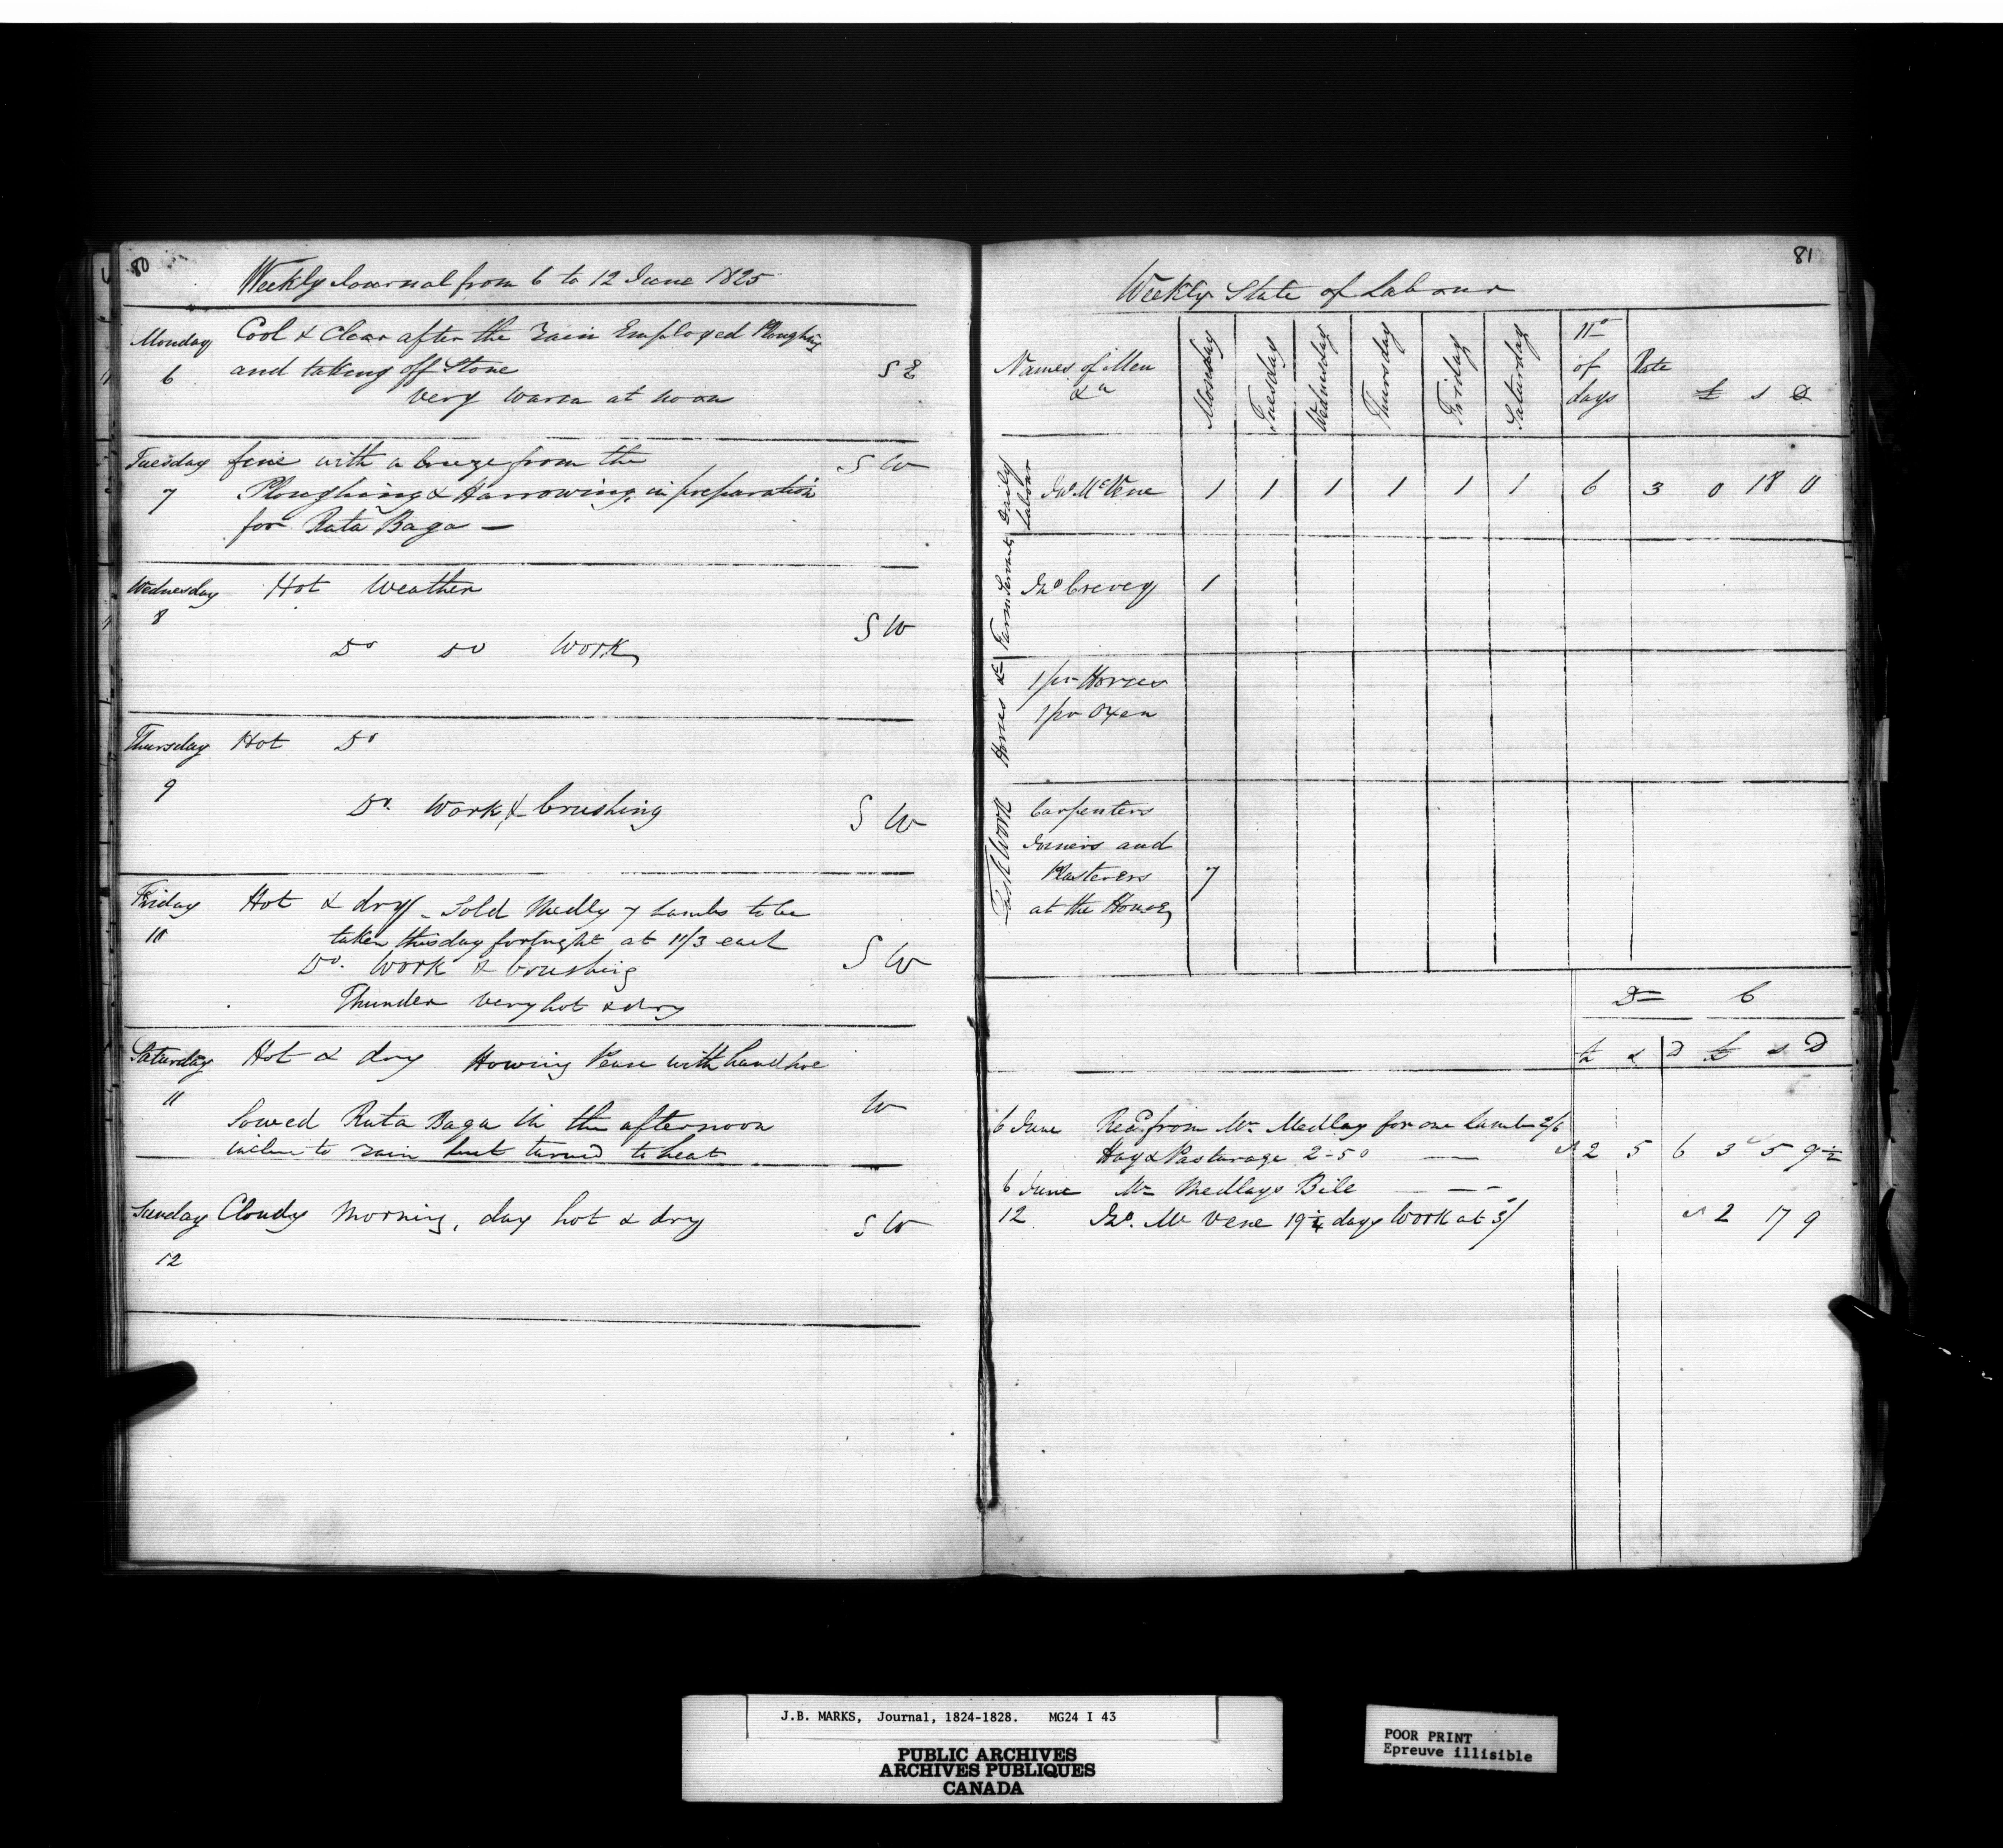 80
Weekly Journal from 6 to 12 June 1825
Monday Cool & Clear after the rain Employed Ploughing
6 and taking off Stone S E
very warm at noon
Tuesday fine with a breeze from the S W
7 Ploughing & Harrowing in preparation
for Ruta Baga —
Wednesday Hot Weather
8 S W
Do Do Work
Thursday Hot Do
9 Do. Work & brushing S W
Friday Hot & dry - Sold Medly 7 Lambs to be
10 taken this day fortnight at 11/3 each
Do. Work & brushing S W
Thunder very hot & dry
Saturday Hot & dry Howing Pease with hand hoe
11 W
Sowed Ruta Baga in the afternoon
incline to rain but turned to heat
Sunday Cloudy Morning, day hot & dry S W
12
81
Weekly State of Labour
Names of Men &a Monday Tuesday Wednesday Thursday Friday Saturday No of days Rate £ s D
Daily Labour Jno McVene 1 1 1 1 1 1 6 3 0 18 0
Farm Servants Jno Crevey 1
Horses &c 1 pr Horses
1 pr Oxen
Task Work Carpenters
Joiners and
Plasterers 7
at the House
D C
£ s D £ s D
6 June Recd from Mr Medlay for one Lamb 2/6
Hay & Pasturage 2-5 0 — 2 5 6 3 5 9 1/2
6 June Mr Medlays Bill — — -
12 Jno. Mc Vene 19 1/4 days Work at 3/ 2 17 9
J.B. MARKS, Journal, 1824-1828. MG24 I 43
PUBLIC ARCHIVES
ARCHIVES PUBLIQUES
CANADA
POOR PRINT
Epreuve illisible